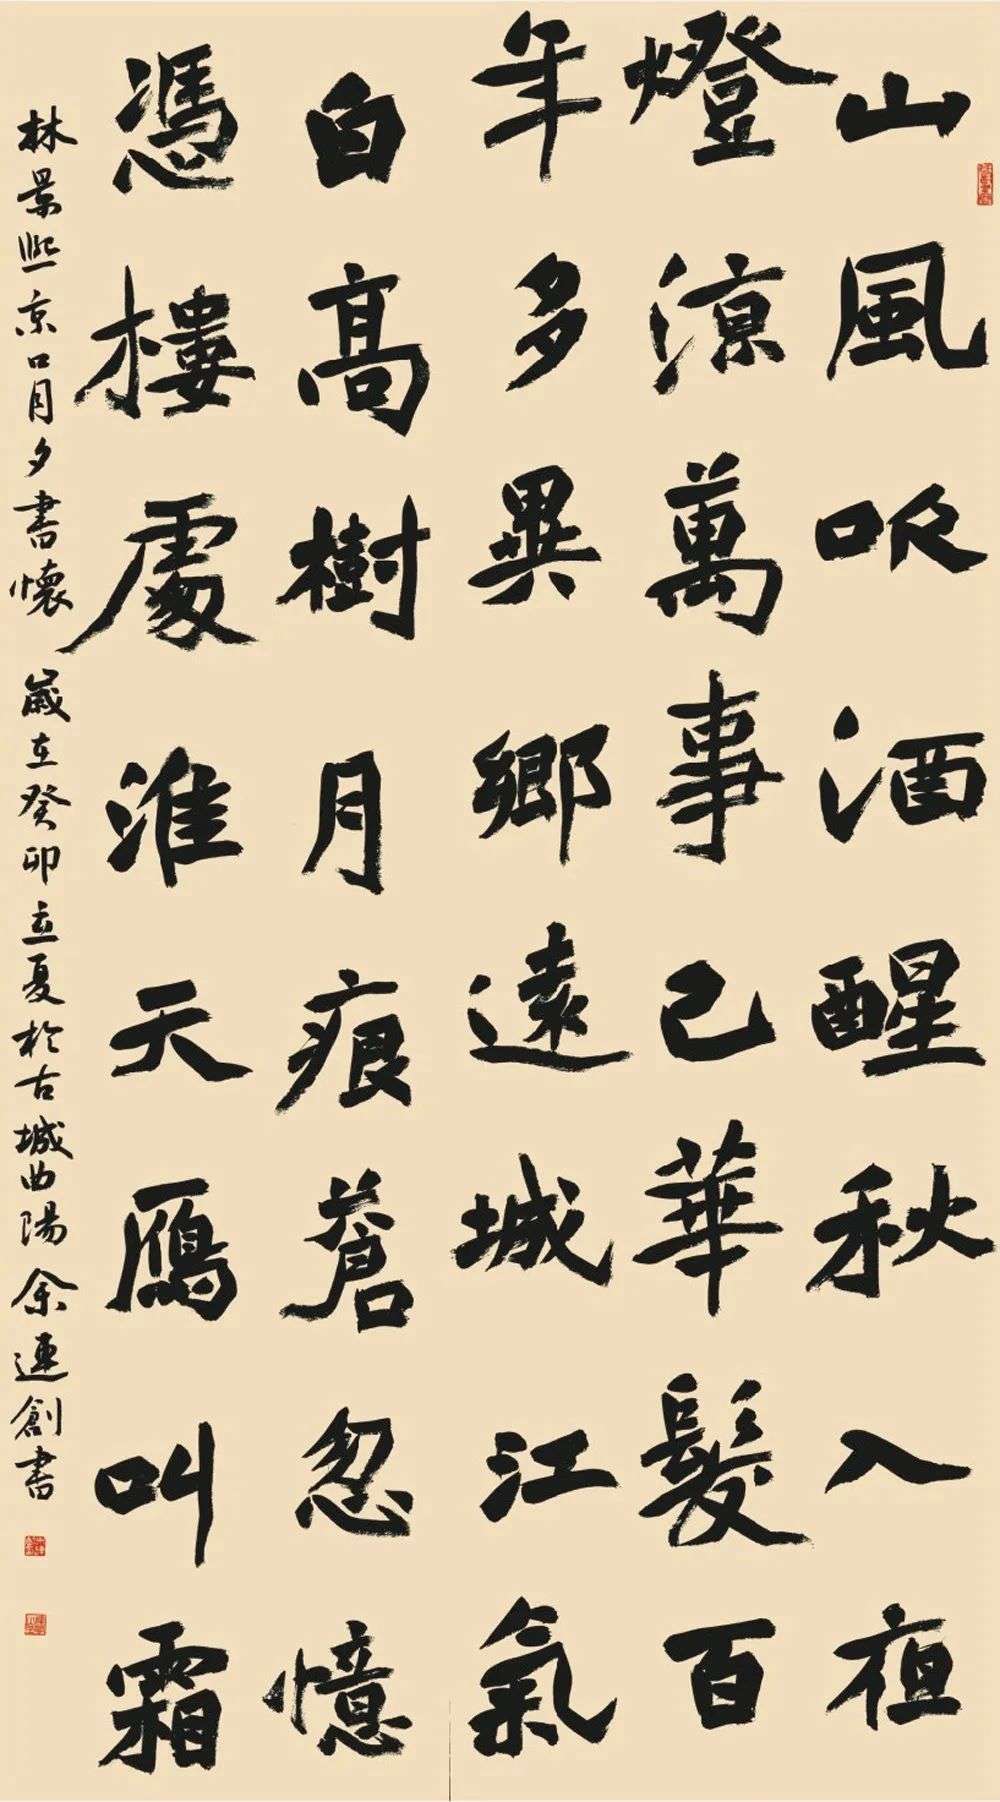 山風吹酒醒秋入夜
燈涼萬事已華髮百
年多異鄉遠城江氣
白高樹月痕蒼忽憶
憑樓處淮天鴈叫霜
林景熙京口月夕書懷 歲在癸卯立夏於古城曲陽余連創書